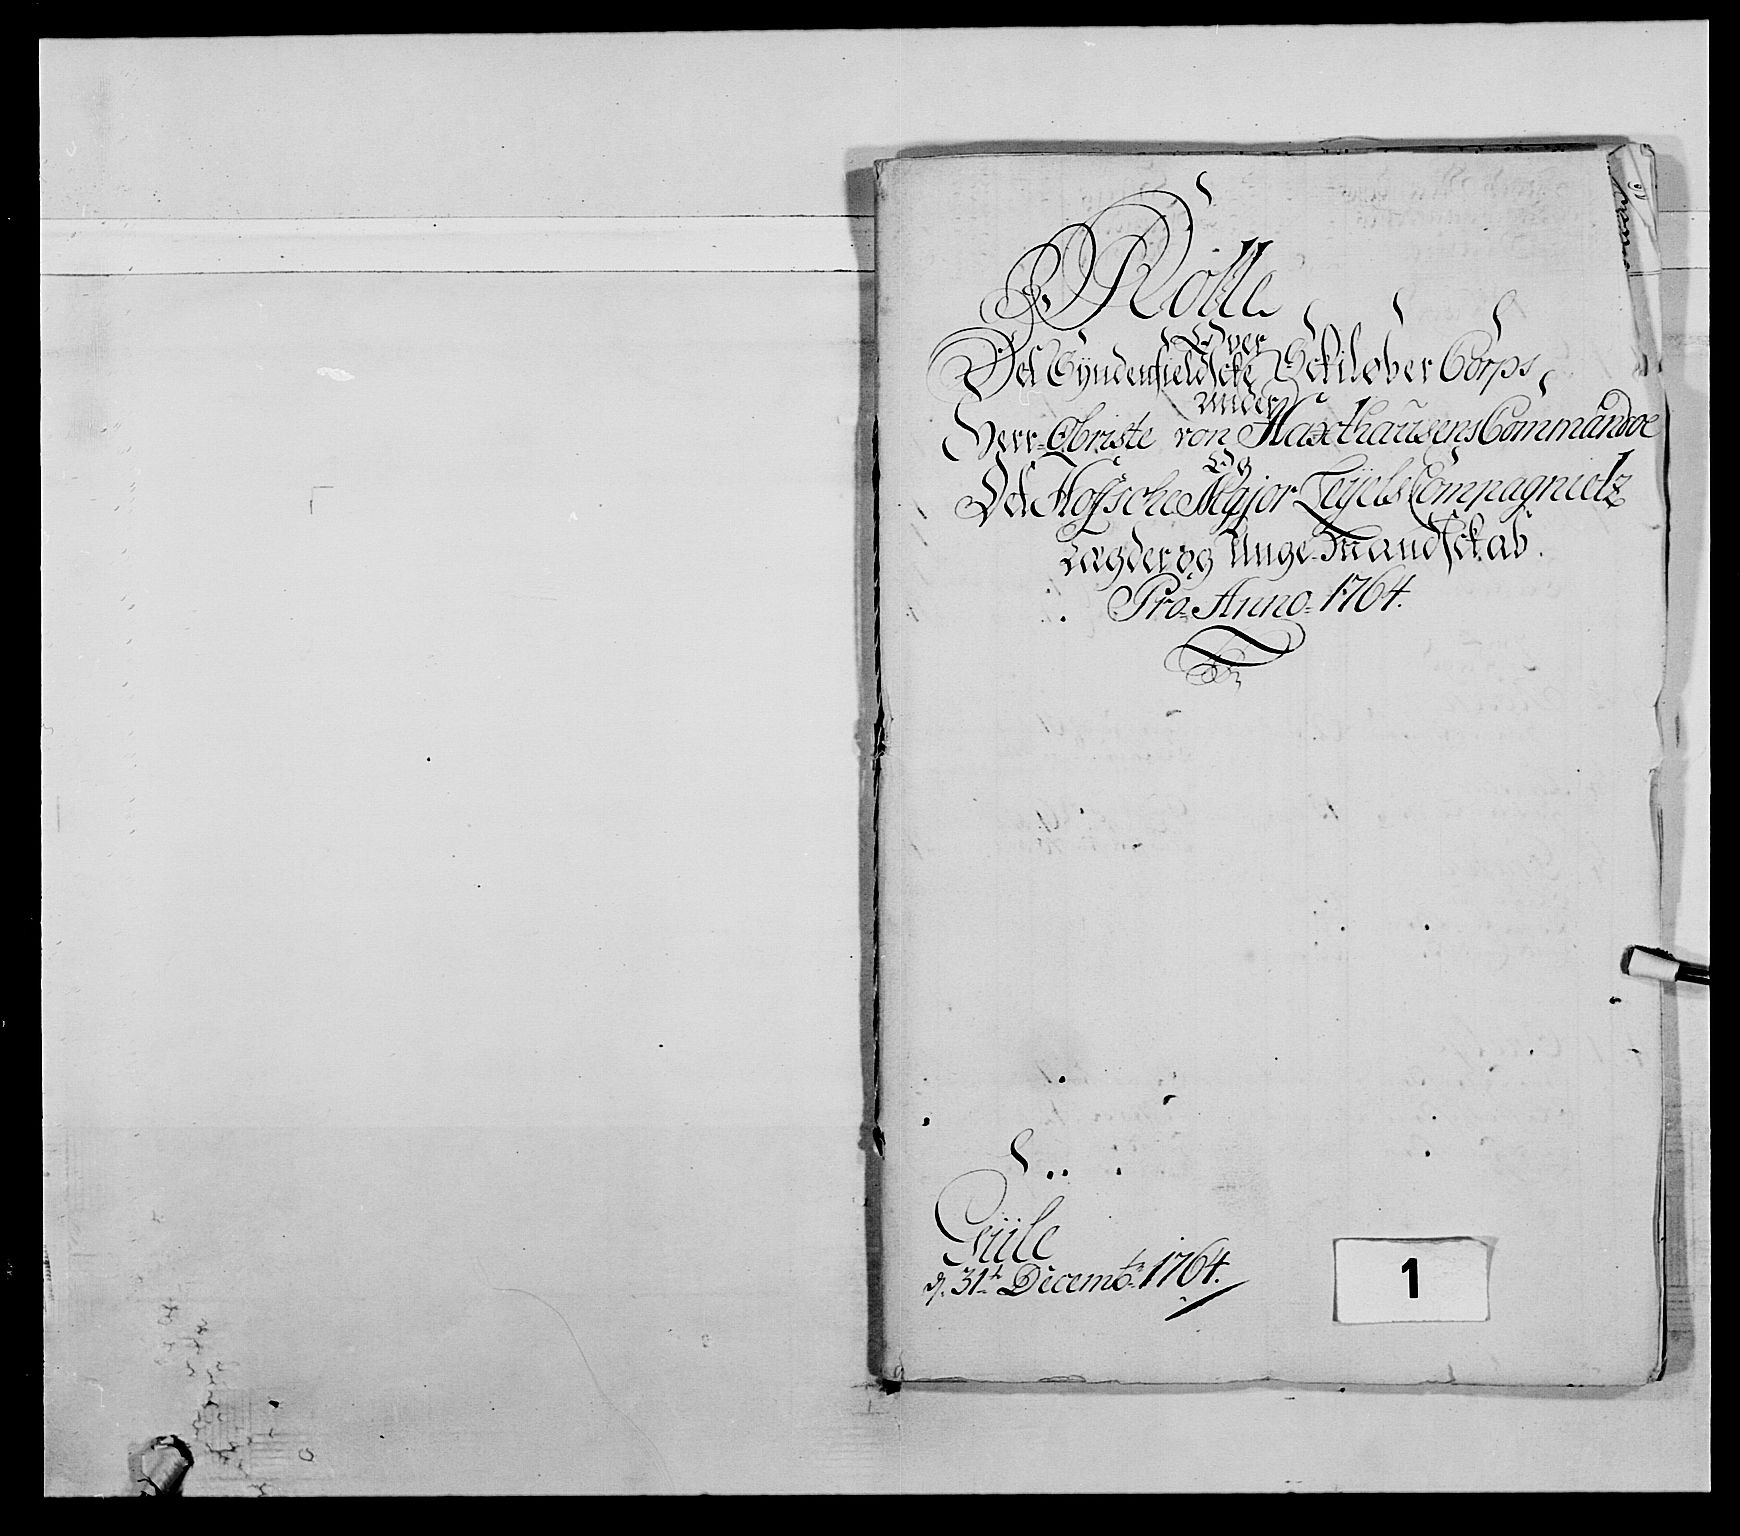 Rölle
Over
Det Syndenfieldske Sckiløber Corps
under
Herr Obriste von Haxthausens Commandoe
Og
Det Hofsche Major Teÿels Compagniets
Lægder og Unge Mandsckab.
Pro Anno 1764.
Güile
d. 31te Decembr. 1764.
1